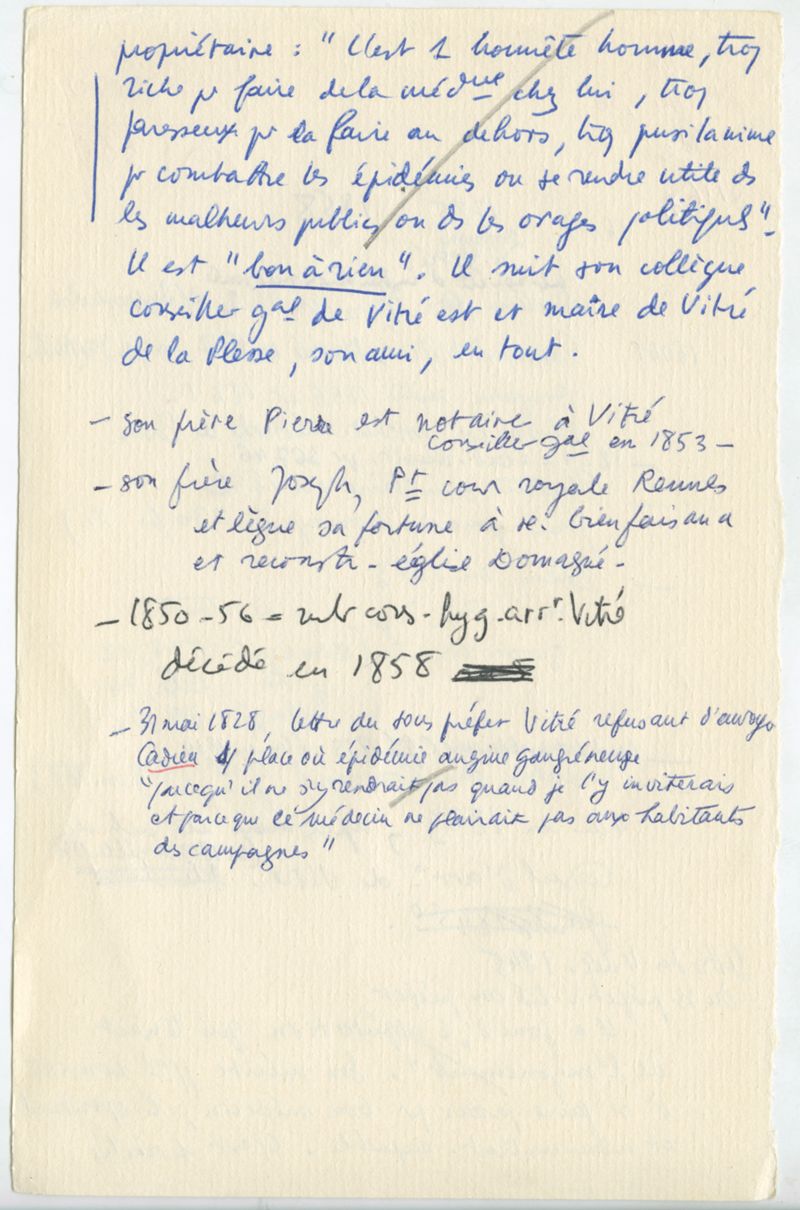 propriétaire : "C'est 1 honnête homme, trop
riche pr faire de la médne chez lui, trop
paresseux pr la faire au dehors, trop pusillanime
pr combattre les épidémies ou se rendre utile ds
les malheurs publics ou ds les orages politiques".
Il est "bon à rien". Il suit son collègue
conseiller gal de Vitré est et maire de Vitré
de la Plesse, son ami, en tout.
- son frère Pierre est notaire à Vitré
conseiller gal en 1853 -
- son frère Joseph, Pt cour royale Rennes
et lègue sa fortune à bienfaisance
et reconstr. église Domagné -
- 1850-56 = mbr cons. hyg. arrt. Vitré
décédé en 1858
- 31 mai 1828, lettre du sous préfet Vitré refusant d'envoyer
Cadieu place où épidémie angine gangréneuse
"parcequ'il ne s'y rendrait pas quand je l'y inviterais
et parce que ce médecin ne plairait pas aux habitants
des campagnes"